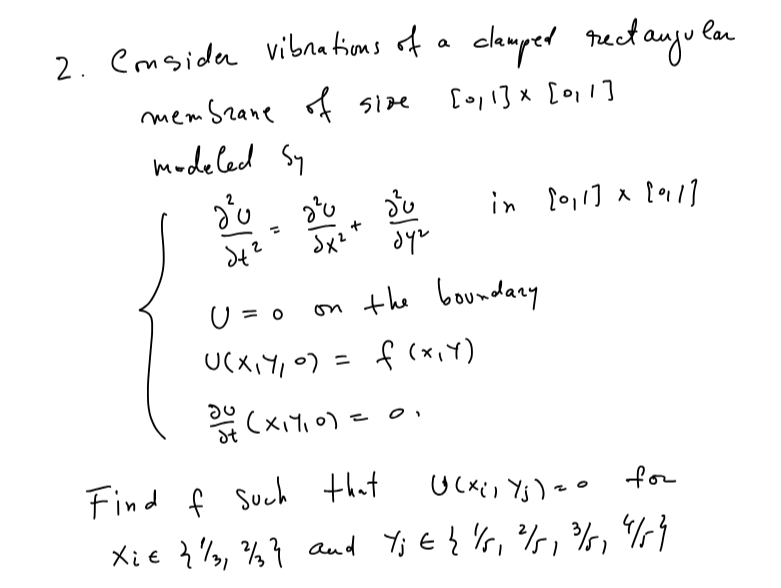 2. Consider vibrations of a clamped rectangular
membrane of size [0,1] x [0,1]
modeled by
∂²U/∂t² = ∂²U/∂x² + ∂²U/∂y² in [0,1] x [0,1]
U = 0 on the boundary
U(x,y,0) = f(x,y)
∂U/∂t (x,y,0) = 0.
Find f such that U(xi, yj) = 0 for
xi ∈ {1/3, 2/3} and yj ∈ {1/5, 2/5, 3/5, 4/5}